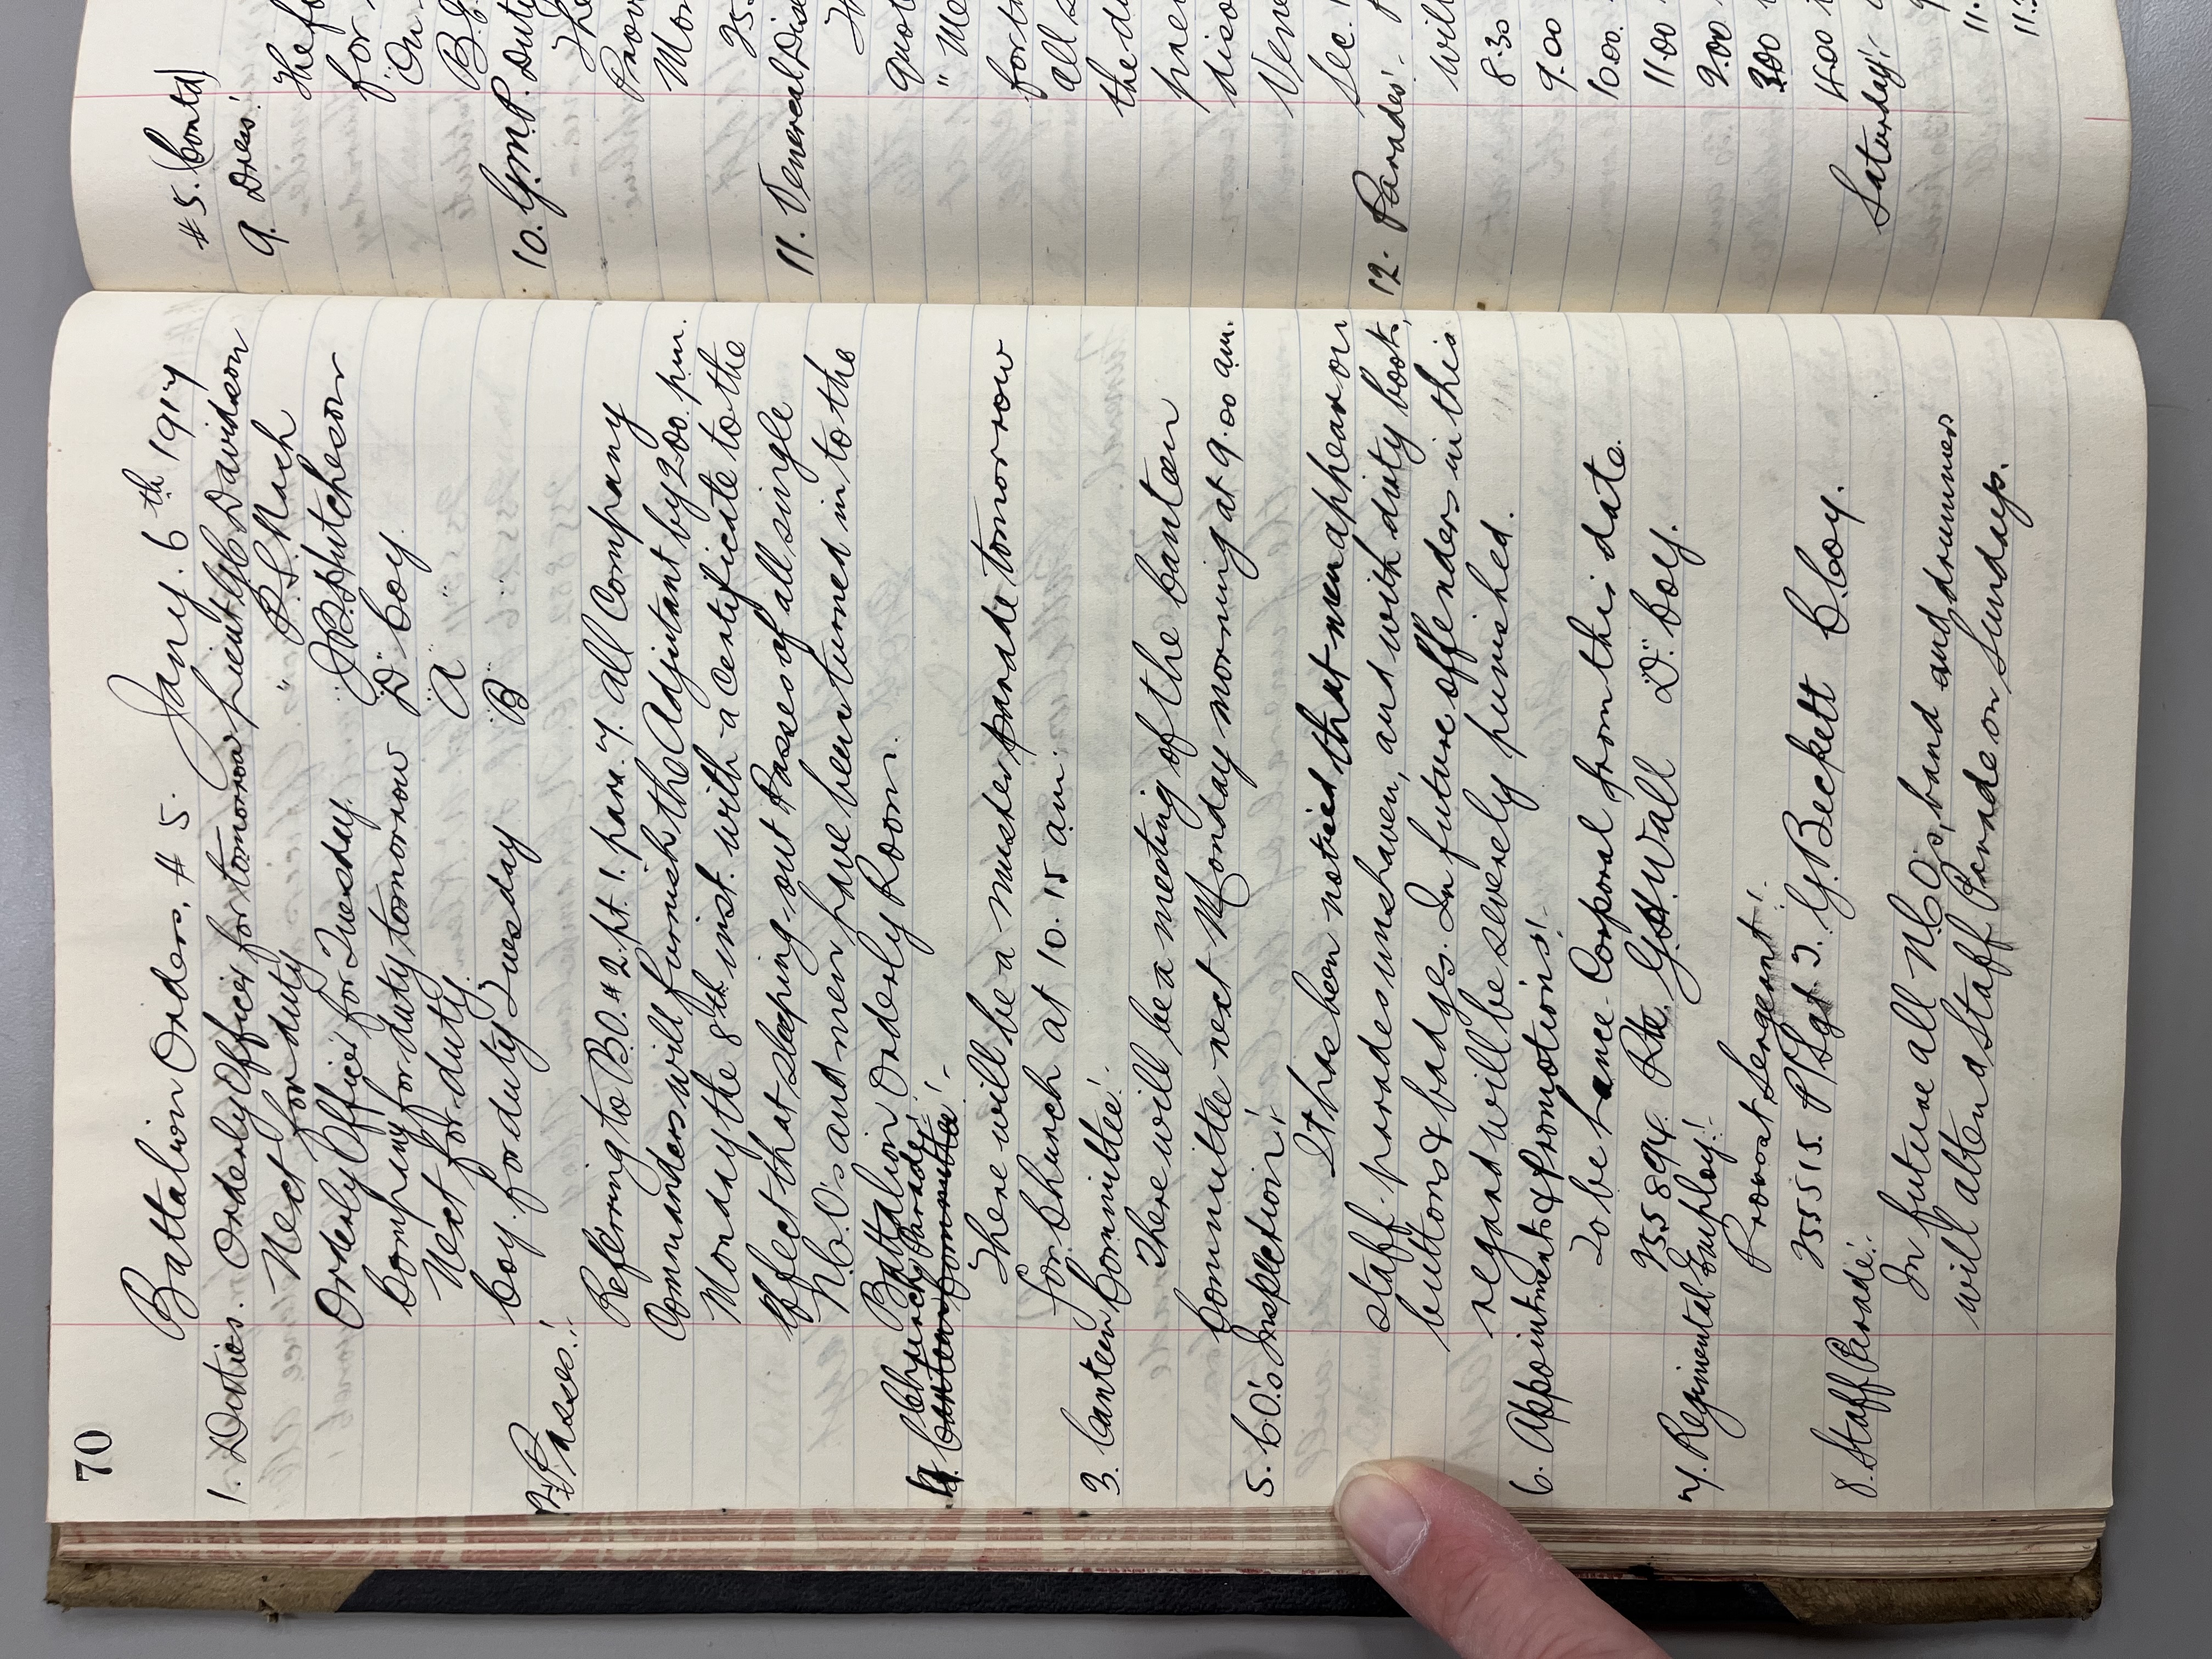 70
Battalion Orders, # 5. Jany. 6th 1917
1. Duties. Orderly Officer for tomorrow Lieut. Davidson
Next for duty " P.S. Mach
Orderly Officer for Tuesday. " J.B. Hutcheson
Company for duty tomorrow "D" Coy.
Next for duty. "A" "
Coy. for duty Tuesday "B" "
2. Passes!
Referring to B.O. # 2. pt. 1. para. 7. all Company
Commanders will furnish the Adjutant by 2.00. p.m.
Monday the 8th inst. with a certificate to the
effect that sleeping-out Passes of all single
N.C.O's and men have been turned in to the
Battalion Orderly Room.
4. Church Parade!
Canteen Committee!-
There will be a muster parade tomorrow
for Church at 10.15 a.m.
3. Canteen Committee!-
There will be a meeting of the Canteen
Committee next Monday morning at 9.00 a.m.
5. C.O's. Inspection!-
It has been noticed that men appear on
staff-parades unshaven, and with dirty boots,
buttons & badges. In future offenders in this
regard will be severely punished.
6. Appointments & promotions!-
To be Lance-Corporal from this date.
235894. Pte. G.H. Wall "D". Coy.
7. Regimental Employ!-
Provost Sergeant!-
255515. P/Sgt. J. G. Beckett C. Coy.
8. Staff Parade!-
In future all N.C.O's, band and drummers
will attend Staff Parade on Sundays.
# 5. (Contd)
9. Dress!
The fo
for
"On
B.
10. G.M.P. Duty
The
Provo
Mon
25
11. Venereal Dise
quot
"Me
forth
all
the d
prev
diso
Vene
Sec.
12. Parades!-
will
8.30
9.00
10.00.
11.00
2.00
3.00
4.00
Saturday!-
9
11.
11.